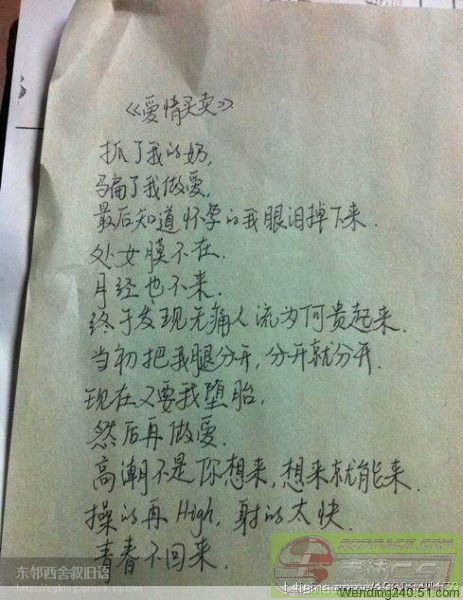 《爱情买卖》
抓了我的奶,
骗了我做爱,
最后知道怀孕的我眼泪掉下来.
处女膜不在.
月经也不来.
终于发现无痛人流为何贵起来.
当初把我腿分开,分开就分开.
现在又要我堕胎,
然后再做爱.
高潮不是你想来,想来就能来.
操的再High,射的太快.
青春不回来.
东邻西舍叙旧语
Wending240.51.com